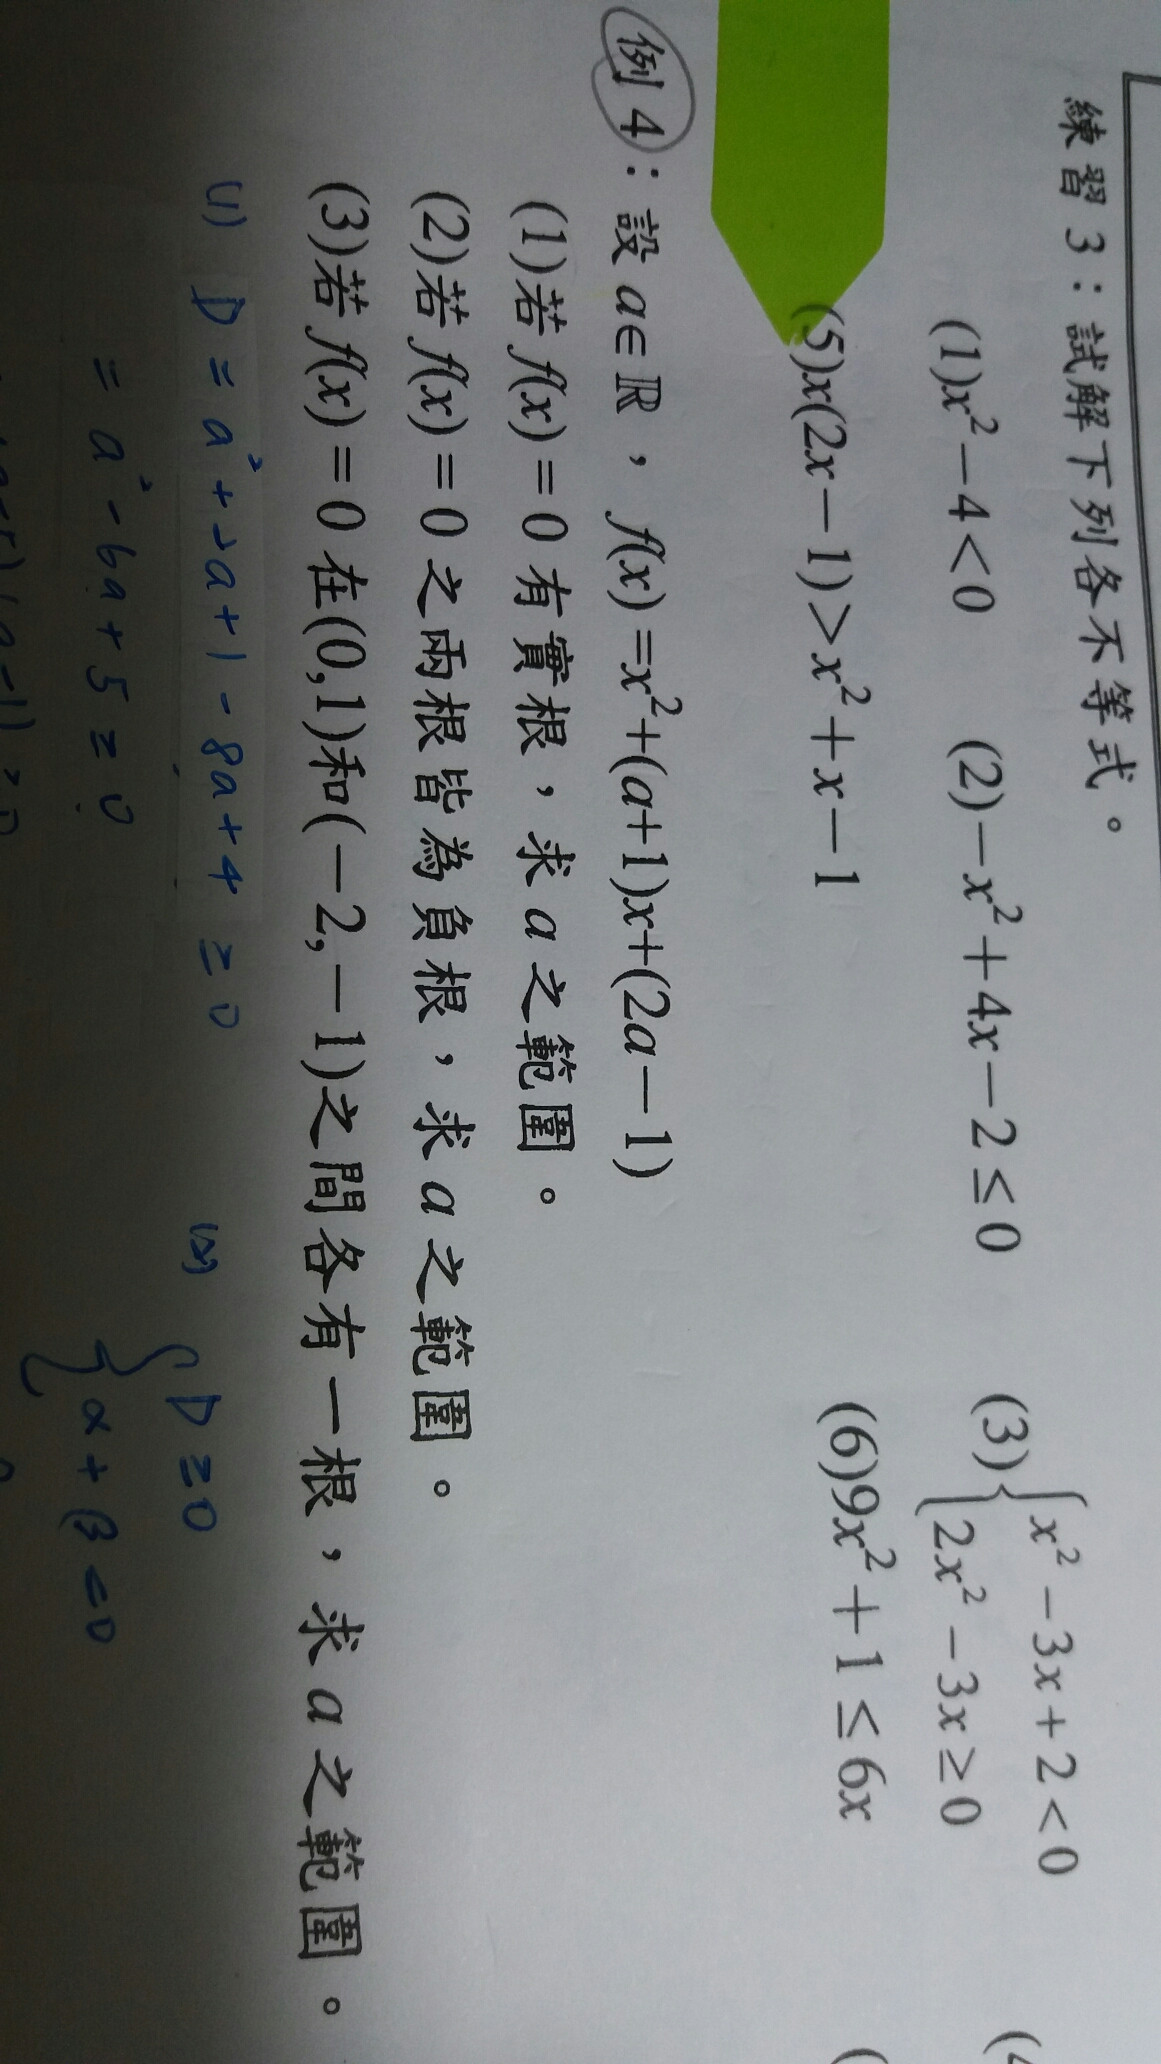 練習3：試解下列各不等式。
(1)x²－4<0 (2)－x²＋4x－2≤0 (3){x²－3x＋2<0
2x²－3x≥0
(5)x(2x－1)>x²＋x－1 (6)9x²＋1≤6x
例4：設a∈ℝ，f(x)=x²+(a+1)x+(2a－1)
(1)若f(x)=0有實根，求a之範圍。
(2)若f(x)=0之兩根皆為負根，求a之範圍。
(3)若f(x)=0在(0,1)和(－2,－1)之間各有一根，求a之範圍。
(1) D = a²+2a+1-8a+4 ≥0
= a²-6a+5≥0
(2) { D≥0
α+β<0